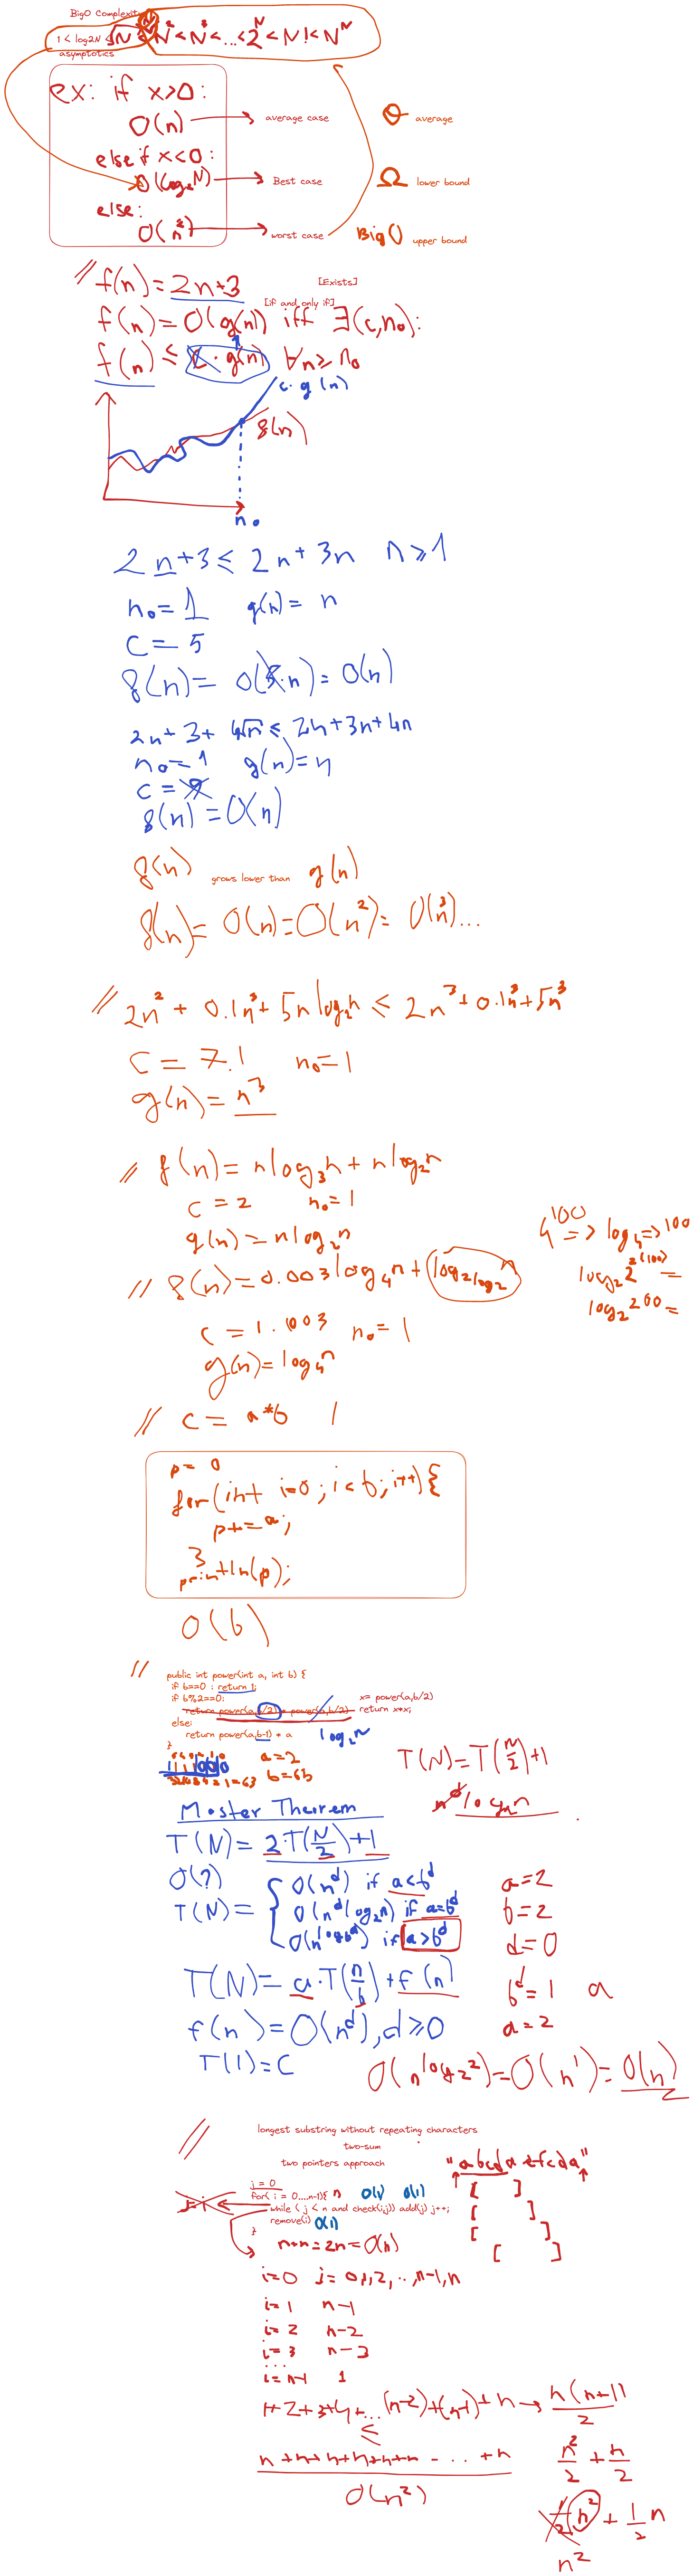 BigO Complexity
1 < log2N < √N < N < N² < N³ < ... < 2^N < N! < N^N
asymptotics
ex: if x>0:
O(n) → average case
else if x<0:
O(log₂N) → Best case
else:
O(n²) → worst case
Θ average
Ω lower bound
Big O upper bound
// f(n) = 2n+3
[Exists]
[if and only if]
f(n) = O(g(n)) iff ∃(c,n₀):
f(n) ≤ c · g(n) ∀n ≥ n₀
c · g(n)
f(n)
n₀
2n+3 ≤ 2n+3n n ≥ 1
n₀ = 1 g(n) = n
c = 5
f(n) = O(5·n) = O(n)
2n+3+4√n ≤ 2n+3n+4n
n₀ = 1 g(n) = n
c = 9
f(n) = O(n)
f(n) grows lower than g(n)
f(n) = O(n) = O(n²) = O(n³)...
// 2n² + 0.1n³ + 5n log₂n ≤ 2n³ + 0.1n³ + 5n³
c = 7.1 n₀ = 1
g(n) = n³
// f(n) = n log₃n + n log₂n
c = 2 n₀ = 1
g(n) = n log₂n
// f(n) = 0.003 log₄n + log₂log₂n
c = 1.003 n₀ = 1
g(n) = log₄n
4^100 => log₄ => 100
log₂2^2(100) =
log₂2^200 =
// c = a*b 1
p = 0
for(int i=0; i<b; i++){
p+=a;
}
println(p);
O(b)
//
public int power(int a, int b) {
if b==0 : return 1;
if b%2==0: x= power(a,b/2)
return power(a,b/2) * power(a,b/2) return x*x;
else:
return power(a,b-1) * a log₂N
}
a=2
b=63
T(N) = T(N/2)+1
n^d log₂n
Master Theorem
T(N) = 2·T(N/2)+1
O(?)
T(N) = { O(n^d) if a<b^d
O(n^d log₂n) if a=b^d
O(n^log_b a) if a>b^d
a=2
b=2
d=0
T(N) = a·T(n/b)+f(n)
b^d=1 a
f(n) = O(n^d), d ≥ 0
a=2
T(1) = C
O(n^log₂2) = O(n¹) = O(n)
//
longest substring without repeating characters
two-sum
two pointers approach
"abcdaefcda"
j = 0
for( i = 0....n-1){ n O(1) O(1)
j=i
while ( j < n and check(i,j)) add(j) j++;
remove(i) O(1)
}
n+n=2n=O(n)
[ ]
[ ]
[ ]
[ ]
i=0 j=0,1,2,..,n-1,n
i=1 n-1
i=2 n-2
i=3 n-3
...
i=n-1 1
1+2+3+4+...(n-2)+(n-1)+n → n(n+1)/2
≤
n+n+n+n+n+n-...+n
n²/2 + n/2
O(n²)
1/2 n² + 1/2 n
n²